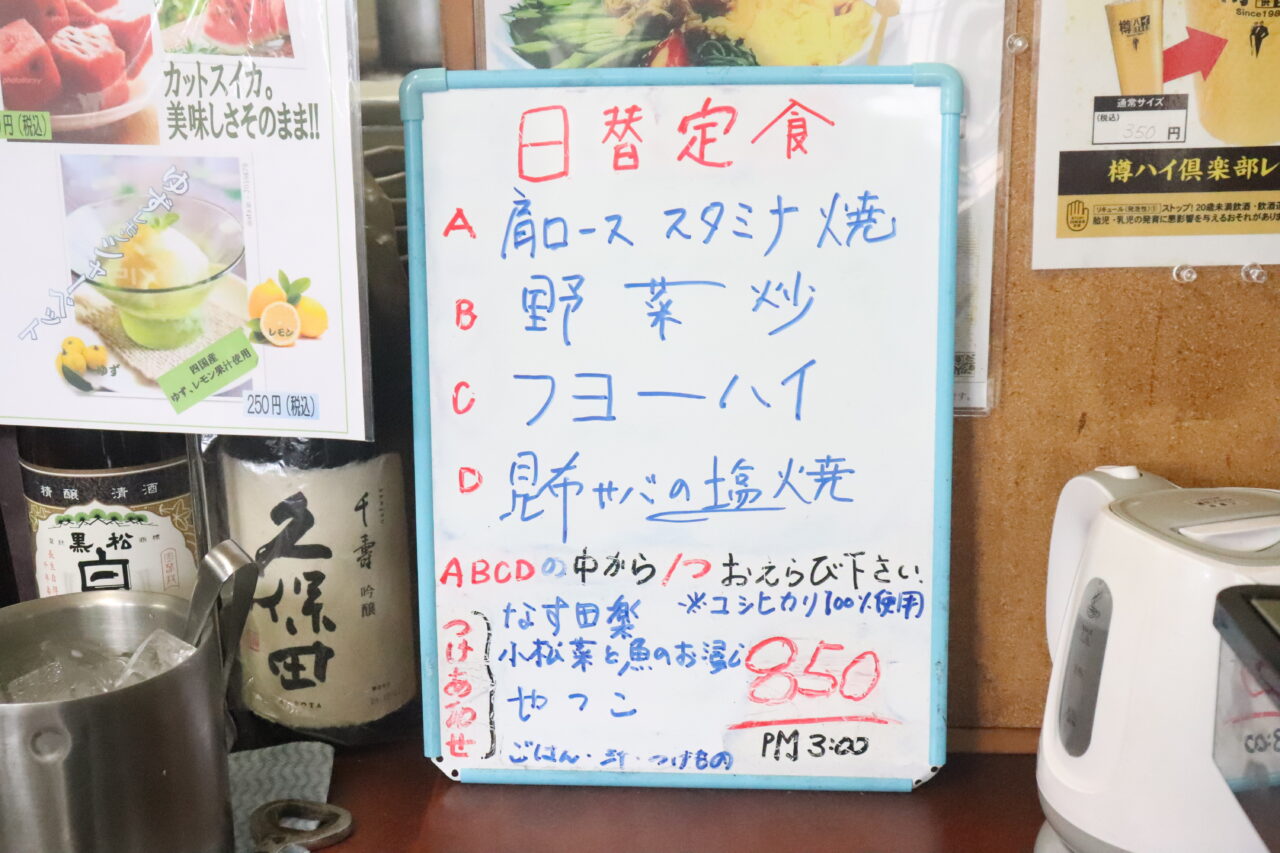 カットスイカ。
美味しさそのまま!!
円(税込)
ゆずシャーベット
レモン
ゆず
四国産
ゆず、レモン果汁使用
250円(税込)
精醸 清酒
黒松
白
千寿
吟醸
久保田
日替定食
A 肩ロース スタミナ焼
B 野菜炒
C フヨーハイ
D 昆布サバの塩焼
ABCDの中から1つおえらび下さい.
※コシヒカリ100%使用
つけあわせ
なす田楽
小松菜と魚のお浸し
やっこ
ごはん・汁・つけもの
850
PM 3:00
Since 198
樽ハイ
通常サイズ
(税込)
350円
樽ハイ倶楽部レ
リキュール(発泡性)① ストップ!20歳未満飲酒・飲酒運
胎児・乳児の発育に悪影響を与えるおそれがあり